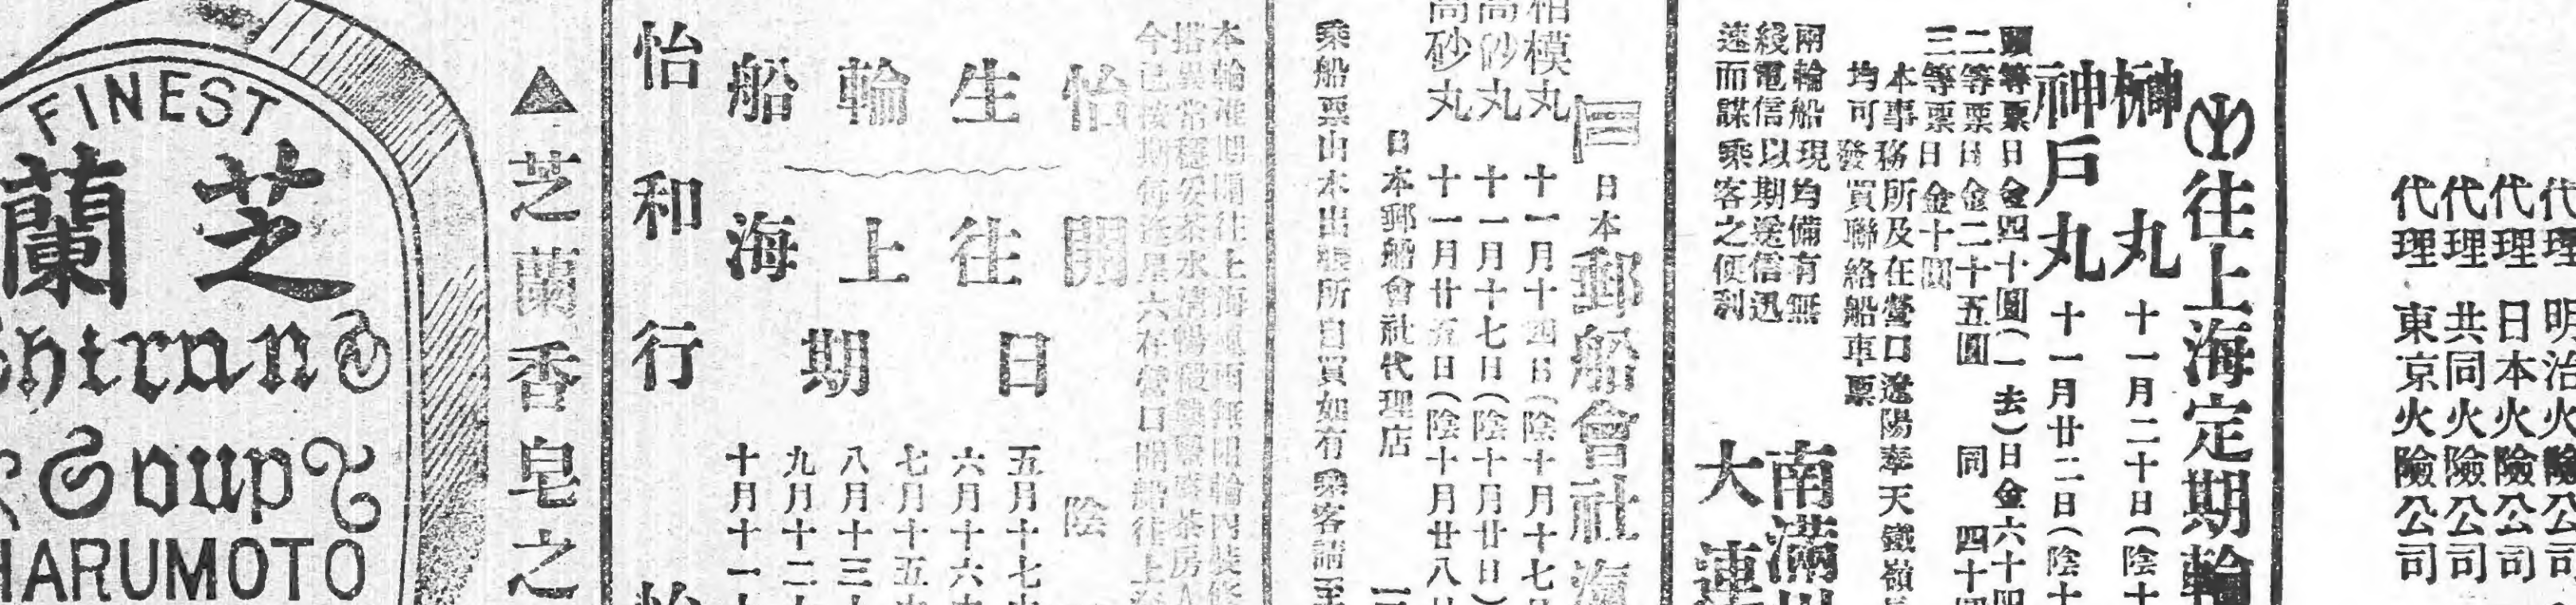 代理 明治火險公司
代理 日本火險公司
代理 共同火險公司
代理 東京火險公司
往上海定期輪
榊丸 十一月二十日(陰十
神戶丸 十一月廿二日(陰十
頭等票日金四十圓(一去)日金六十四
二等票日金二十五圓 同 四十圓
三等票日金十圓
本事務所及在營口遼陽奉天鐵嶺
均可發買聯絡船車票
兩輪船現均備有無
綫電信以期遞信迅
速而諜乘客之便利
南滿州
大連
日本郵船會社
相模丸 十一月十四日(陰十月十七日
高砂丸 十一月十七日(陰十月廿日)
高砂丸 十一月廿五日(陰十月廿八日
日本郵船會社代理店
乘船票由本出張所自買如有乘客請至
本輪准期開往上海
今已按期每逢星六在營口開船往上
怡生輪船
開往上海
日期
陰
五月十七
六月十六
七月十五
八月十三
九月十二
十月十一
怡和行
▲芝蘭香皂之
FINEST
芝蘭
Shiran
Soup
HARUMOTO